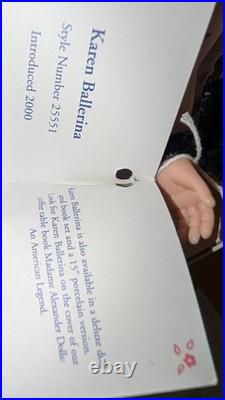 Karen Ballerina
Style Number 25551
Introduced 2000
Ballerina is also available in a deluxe
and book set and a 15" porcelain version.
Look for Karen Ballerina on the cover of our
coffee table book Madame Alexander Dolls:
An American Legend.
Watermark